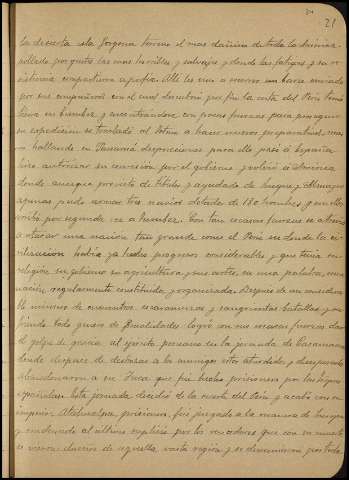 21
la desierta isla Gorgona terreno el mas dañino de toda la America
poblada por gentes las mas terribles y salvajes y donde las fatigas y su
constancia compartieron a porfia. Alli les vino a recoger un barco enviado
por sus compañeros con el cual descubrió por fin la costa del Perú tomó
tierra en tumbez y encontrandose con pocas fuerzas para proseguir
su expedicion se trasladó al Istmo a hacer nuevos preparativos, mas
no hallando en Panamá disposiciones para ello pasó a España
hizo autorizar su concesion por el gobierno y volvió a America
donde aunque provisto de titulos y ayudado de Luque y Almagro
apenas pudo armar tres navios dotados de 180 hombres, y con ellos
arribó por segunda vez a tumbez. Con tan escasas fuerzas se atrevio
a atacar una nacion tan grande como el Perú en donde la ci-
vilizacion habia ya hecho progresos considerables y que tenia su
religion, su gobierno su agricultura y sus artes, en una palabra, una
nacion regularmente constituida y organizada. Despues de un considera-
ble número de encuentros, escaramuzas y sangrientas batallas, y su-
friendo todo genero de penalidades logró con sus escasas fuerzas dar
el golpe de gracia al ejercito peruano en la jornada de Caxamarca
donde despues de destrozar a los enemigos estos aturdidos y dispersando
abandonaron a su Inca que fué hecho prisionero por los bravos
españoles. Esta jornada decidió de la suerte del Perú y acabó con su
imperio. Atahualpa, prisionero, fué juzgado a la manera de Europa
y condenado al último suplicio por los vencedores que con su muerte
se vieron dueños de aquella vasta region y se derramaron por toda